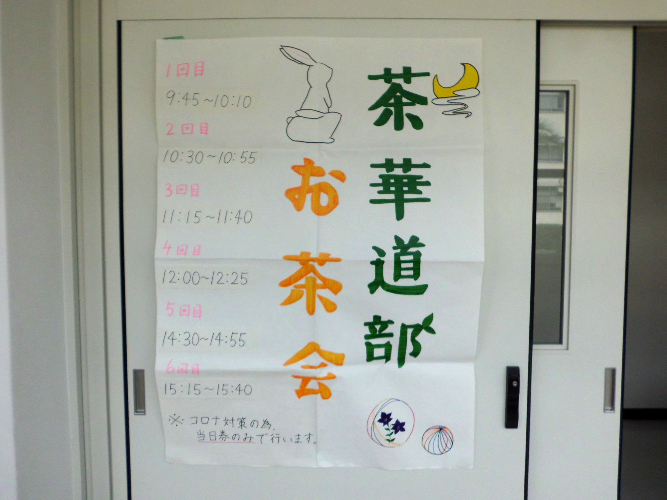 茶華道部
お茶会
1回目
9:45~10:10
2回目
10:30~10:55
3回目
11:15~11:40
4回目
12:00~12:25
5回目
14:30~14:55
6回目
15:15~15:40
※コロナ対策の為、
当日券のみで行います。